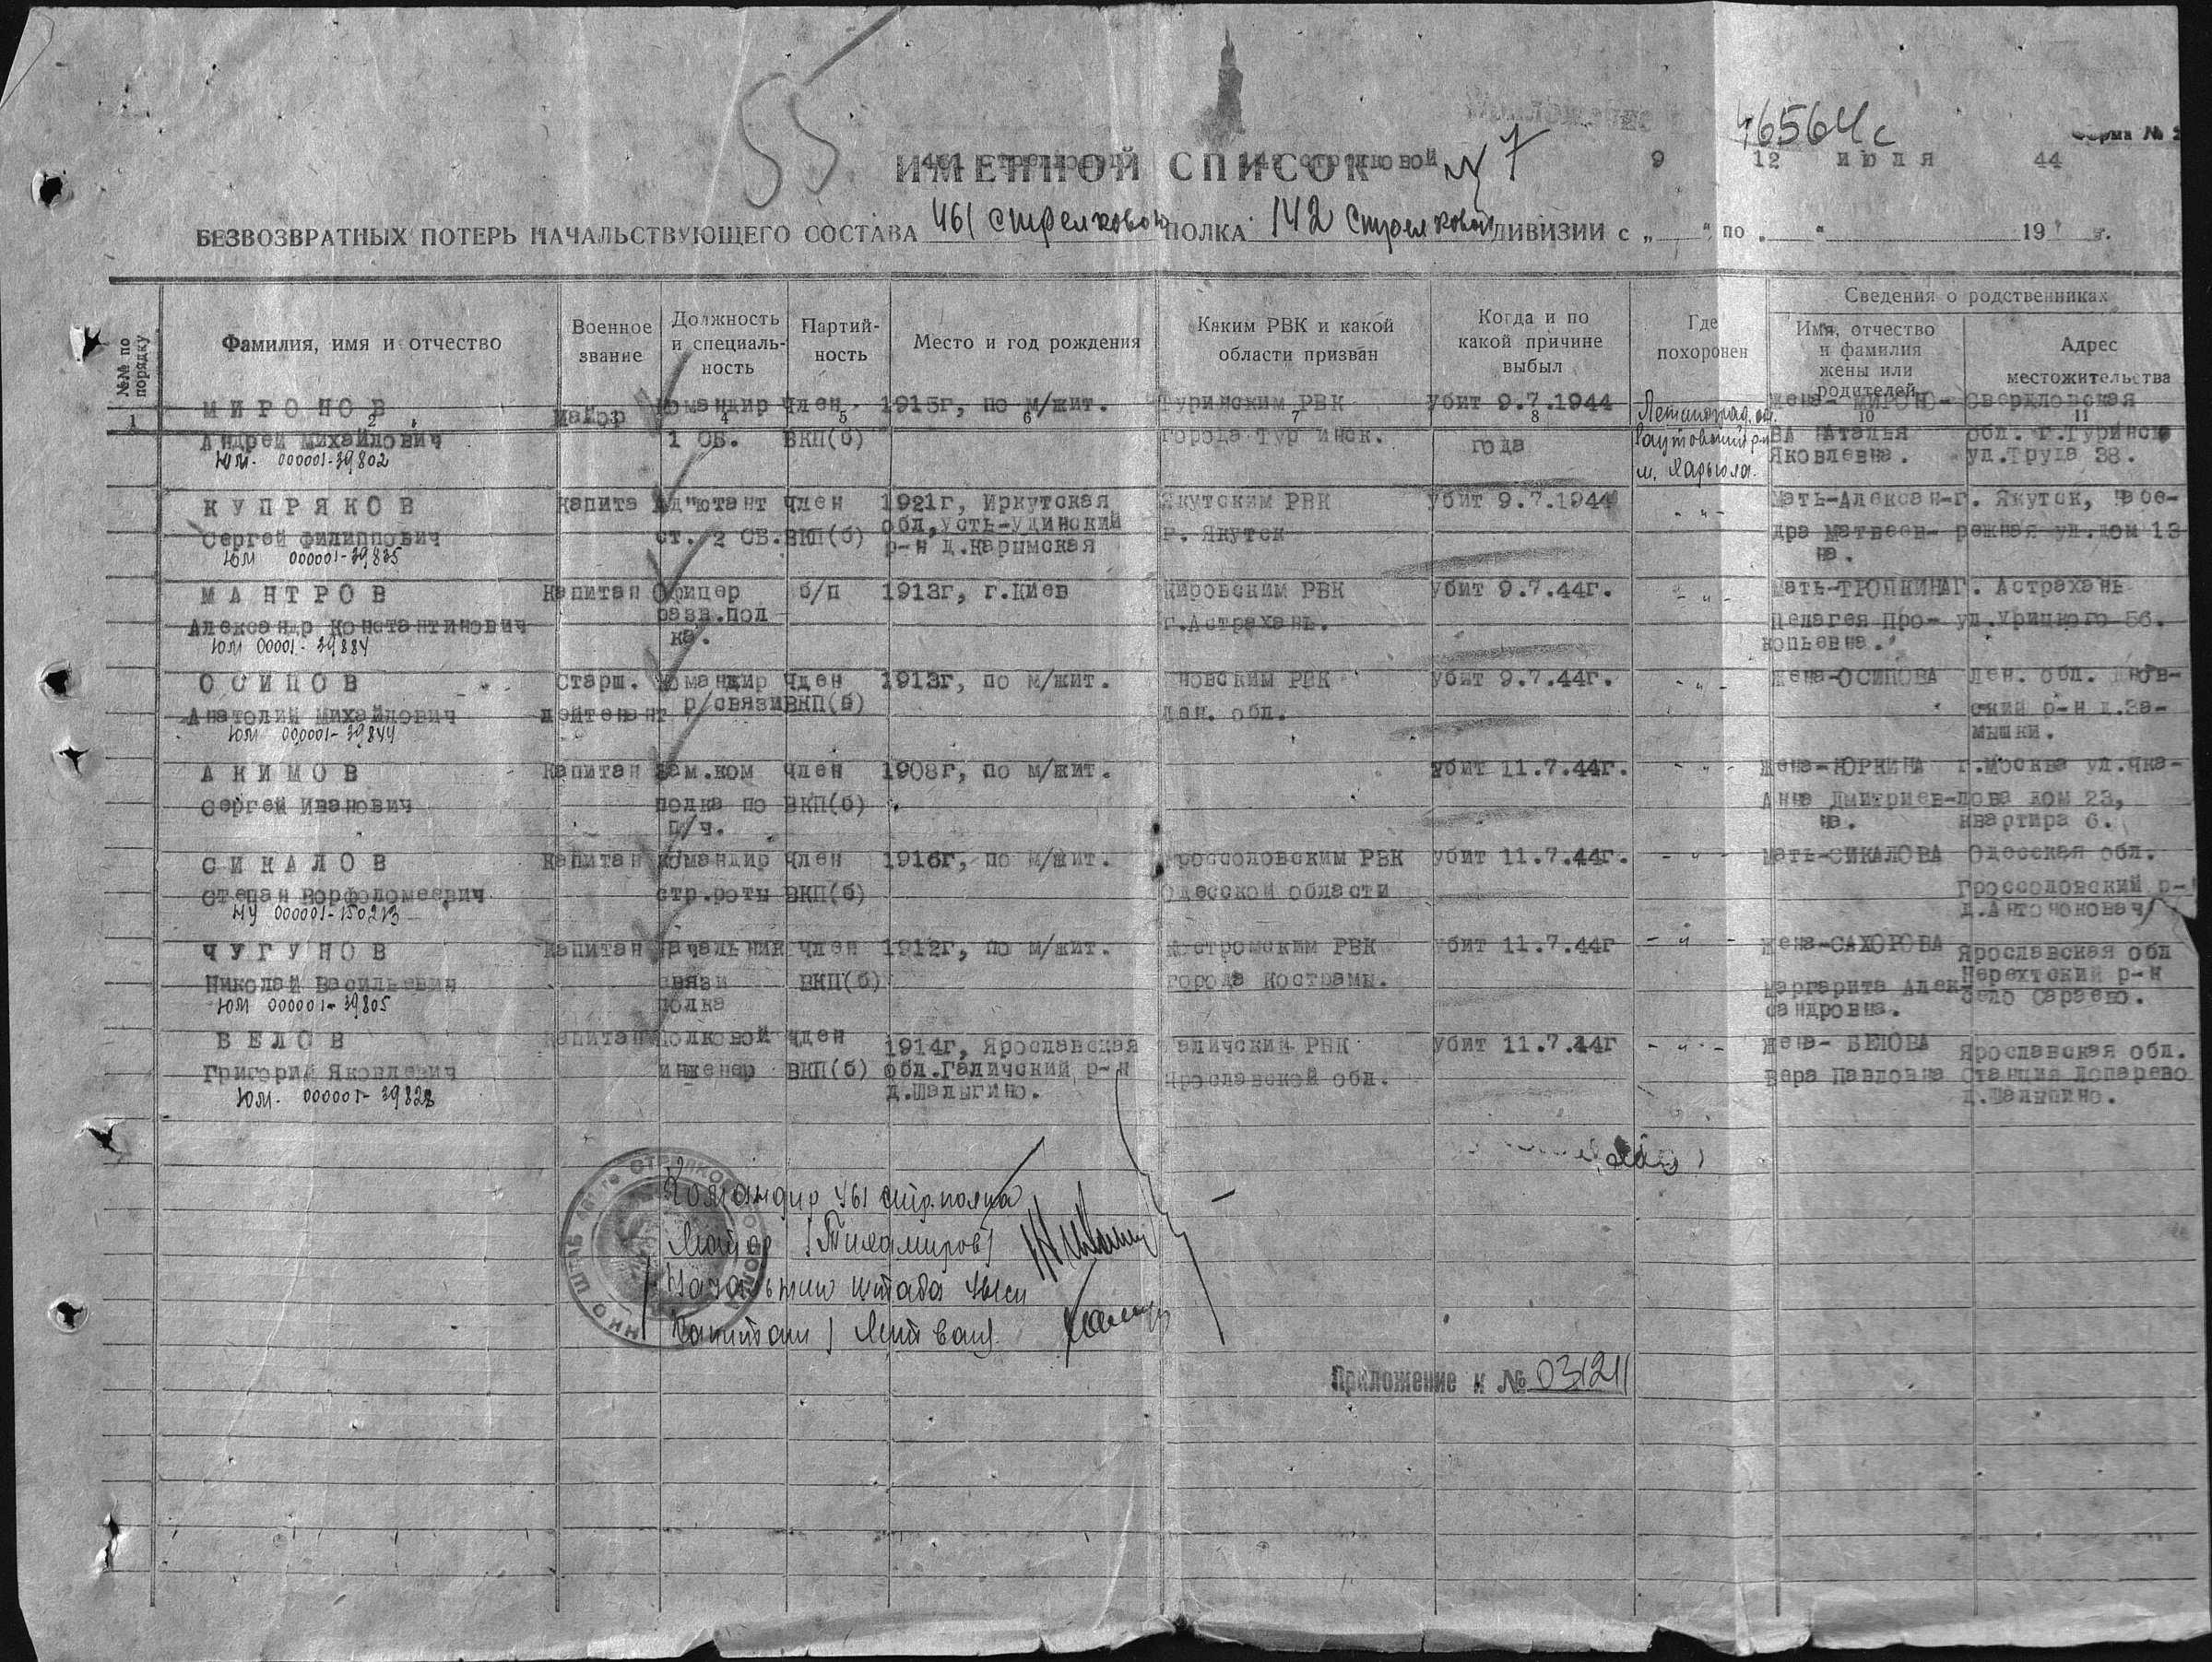 55
46564с
Форма № 2
ИМЕННОЙ СПИСОК № 7
9 12 июля 44
БЕЗВОЗВРАТНЫХ ПОТЕРЬ НАЧАЛЬСТВУЮЩЕГО СОСТАВА 461 стрелкового ПОЛКА 142 стрелковой ДИВИЗИИ с „ “ по „ “ 19 г.
№№ по порядку
Фамилия, имя и отчество
Военное звание
Должность и специаль-ность
Партий-ность
Место и год рождения
Каким РВК и какой области призван
Когда и по какой причине выбыл
Где похоронен
Сведения о родственниках
Имя, отчество и фамилия жены или родителей
Адрес местожительства
1 2 3 4 5 6 7 8 10 11
МИРОНОВ майор командир член 1915г, по м/жит. Туринским РВК убит 9.7.1944 Ленинград. об. жена- МИРОНО- Свердловская
Андрей Михайлович 1 СБ. ВКП(б) города Туринск. года Раутовский р-н ВА Наталья обл. г.Туринск
ЮМ. 000001-39802 м. Харьюла. Яковлевна. ул.Труда 38.
КУПРЯКОВ капита Ад"ютант член 1921г, Иркутская Якутским РВК убит 9.7.1944 -"- мать-Алексан- г. Якутск, Набе-
Сергей Филиппович ст. 2 СБ. ВКП(б) обл, Усть-Удинский г. Якутск дра Матвеев- режная ул.дом 13
ЮМ 000001-39835 р-н д.Карымская на.
МАНТРОВ капитан Офицер б/п 1913г, г.Киев Кировским РВК убит 9.7.44г. -"- мать-ТРЮПКИНА Г. Астрахань
Александр Константинович разв.пол г.Астрахань. Пелагея Про- ул.Урицкого 56.
ЮМ 00001-39884 ка. копьевна.
ОСИПОВ старш. командир член 1913г, по м/жит. Дновским РВК убит 9.7.44г. -"- жена-ОСИПОВА Лен. обл. Днов-
Анатолий Михайлович лейтенант р/связи ВКП(б) Лен. обл. ский р-н д.За-
ЮМ 000001-39844 мышки.
АКИМОВ капитан зам.ком член 1908г, по м/жит. убит 11.7.44г. -"- жена-ЮРКИНА г.Москва ул.Чка-
Сергей Иванович полка по ВКП(б) Анна Дмитриев- лова дом 23,
п/ч. на. квартира 6.
СИКАЛОВ капитан командир член 1916г, по м/жит. Гроссоловским РВК убит 11.7.44г. -"- мать-СИКАЛОВА Одесская обл.
Степан Ворфоломеевич стр.роты ВКП(б) Одесской области Гроссоловский р-
НУ 000001-150213 д.Антоноковач
ЧУГУНОВ капитан начальник член 1912г, по м/жит. Костромским РВК убит 11.7.44г -"- жена-САХОРОВА Ярославская обл
Николай Васильевич связи ВКП(б) города Костромы. Маргарита Алек- Нерехтский р-н
ЮМ 000001-39805 полка сандровна. село Сараево.
БЕЛОВ капитан полковой член 1914г, Ярославская Галичским РВК убит 11.7.44г -"- жена- БЕЛОВА Ярославская обл.
Григорий Яковлевич инженер ВКП(б) обл.Галичский р-н Ярославской обл. Вера Павловна Станция Лопарево
ЮМ. 000001-39828 д.Шалыгино. д.Шалыгино.
Командир 461 стр. полка
Майор /Тихамиров/
Начальник штаба 461 сп
Капитан /
Приложение к № 03121